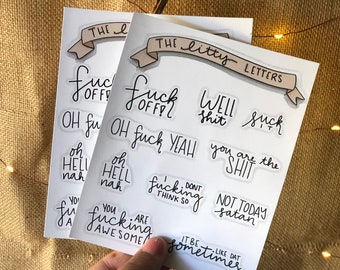 THE
THE litty LETTERS
fuck
OFF!
fuck
OFF!
WELL
shit
suck
IT
OH fuck
OH fuck YEAH
you are the
SHIT
oh
HELL
nah
oh
HELL
nah
i DON'T
fucking
THINK SO
NOT TODAY
satan
YOU
fucking
AWESOME
YOU ARE
fucking
AWESOME!
IT BE LIKE DAT
sometimes